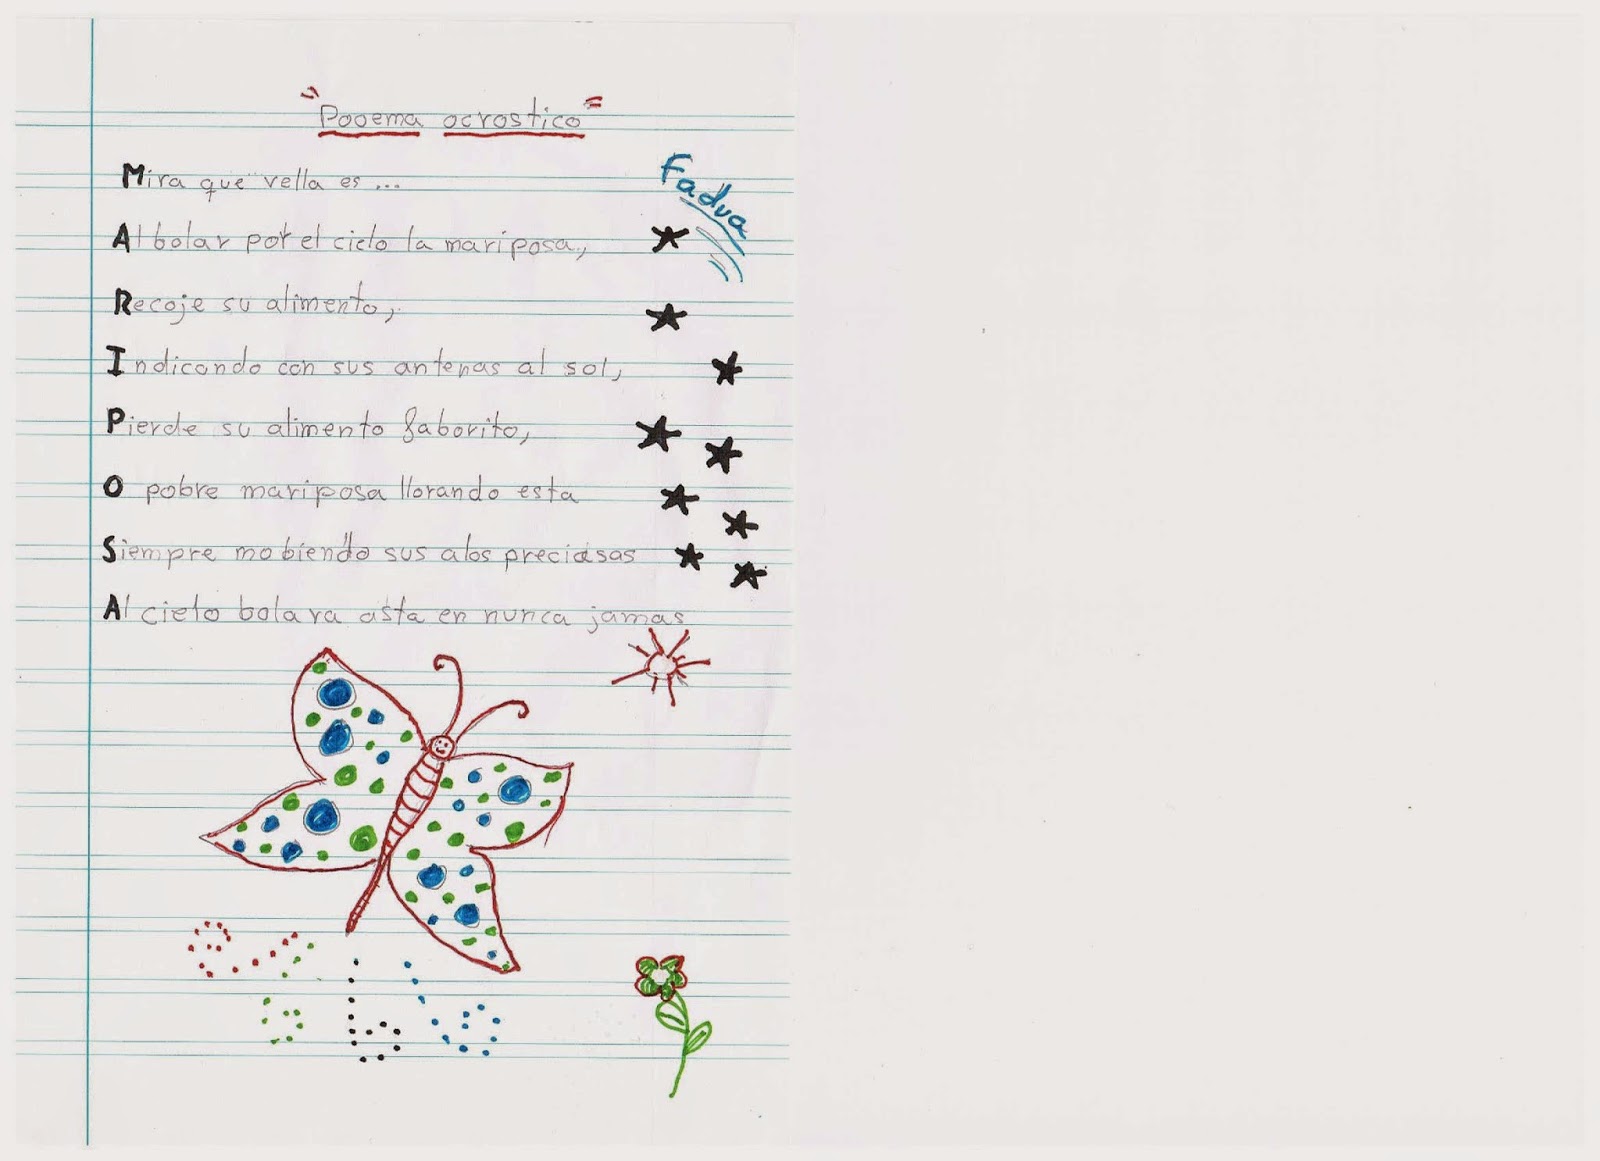 "Pooema acrostico"
Fadua
Mira que vella es ...
Al bolar por el cielo la mariposa,
Recoje su alimento,
Indicando con sus antenas al sol,
Pierde su alimento faborito,
O pobre mariposa llorando esta
Siempre mobiendo sus alas preciosas
Al cielo bolara asta en nunca jamas